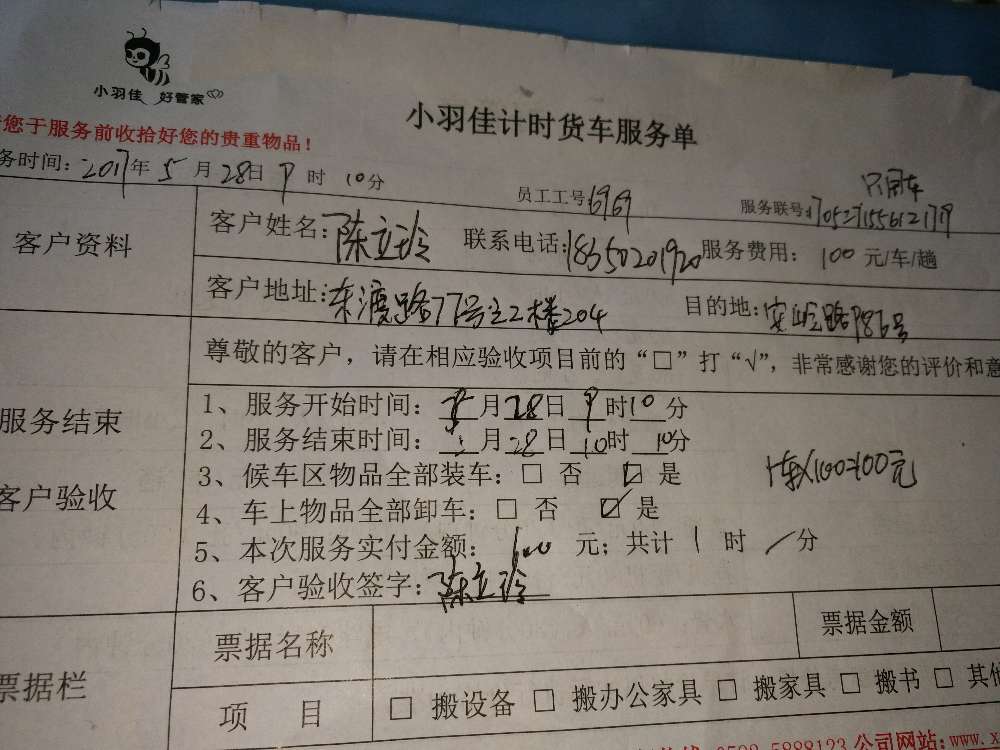 小羽佳 好管家
小羽佳计时货车服务单
您于服务前收拾好您的贵重物品！
务时间：2017年5月28日9时10分
员工工号6969
只用车
服务联号：
客户资料
客户姓名：陈立玲
联系电话：18350201920
服务费用：100元/车/趟
客户地址：东渡路77号之2楼204
目的地：安岭路986号
尊敬的客户，请在相应验收项目前的“□”打“√”，非常感谢您的评价和意
服务结束
客户验收
1、服务开始时间：5月28日9时10分
2、服务结束时间：5月28日10时10分
3、候车区物品全部装车：□ 否 ☑ 是
4、车上物品全部卸车：□ 否 ☑ 是
1车X100=100元
5、本次服务实付金额：100元；共计1时/分
6、客户验收签字：陈立玲
票据栏
票据名称
票据金额
项 目
□ 搬设备 □ 搬办公家具 □ 搬家具 □ 搬书 □ 其他
0592-5888123 公司网站：www.x